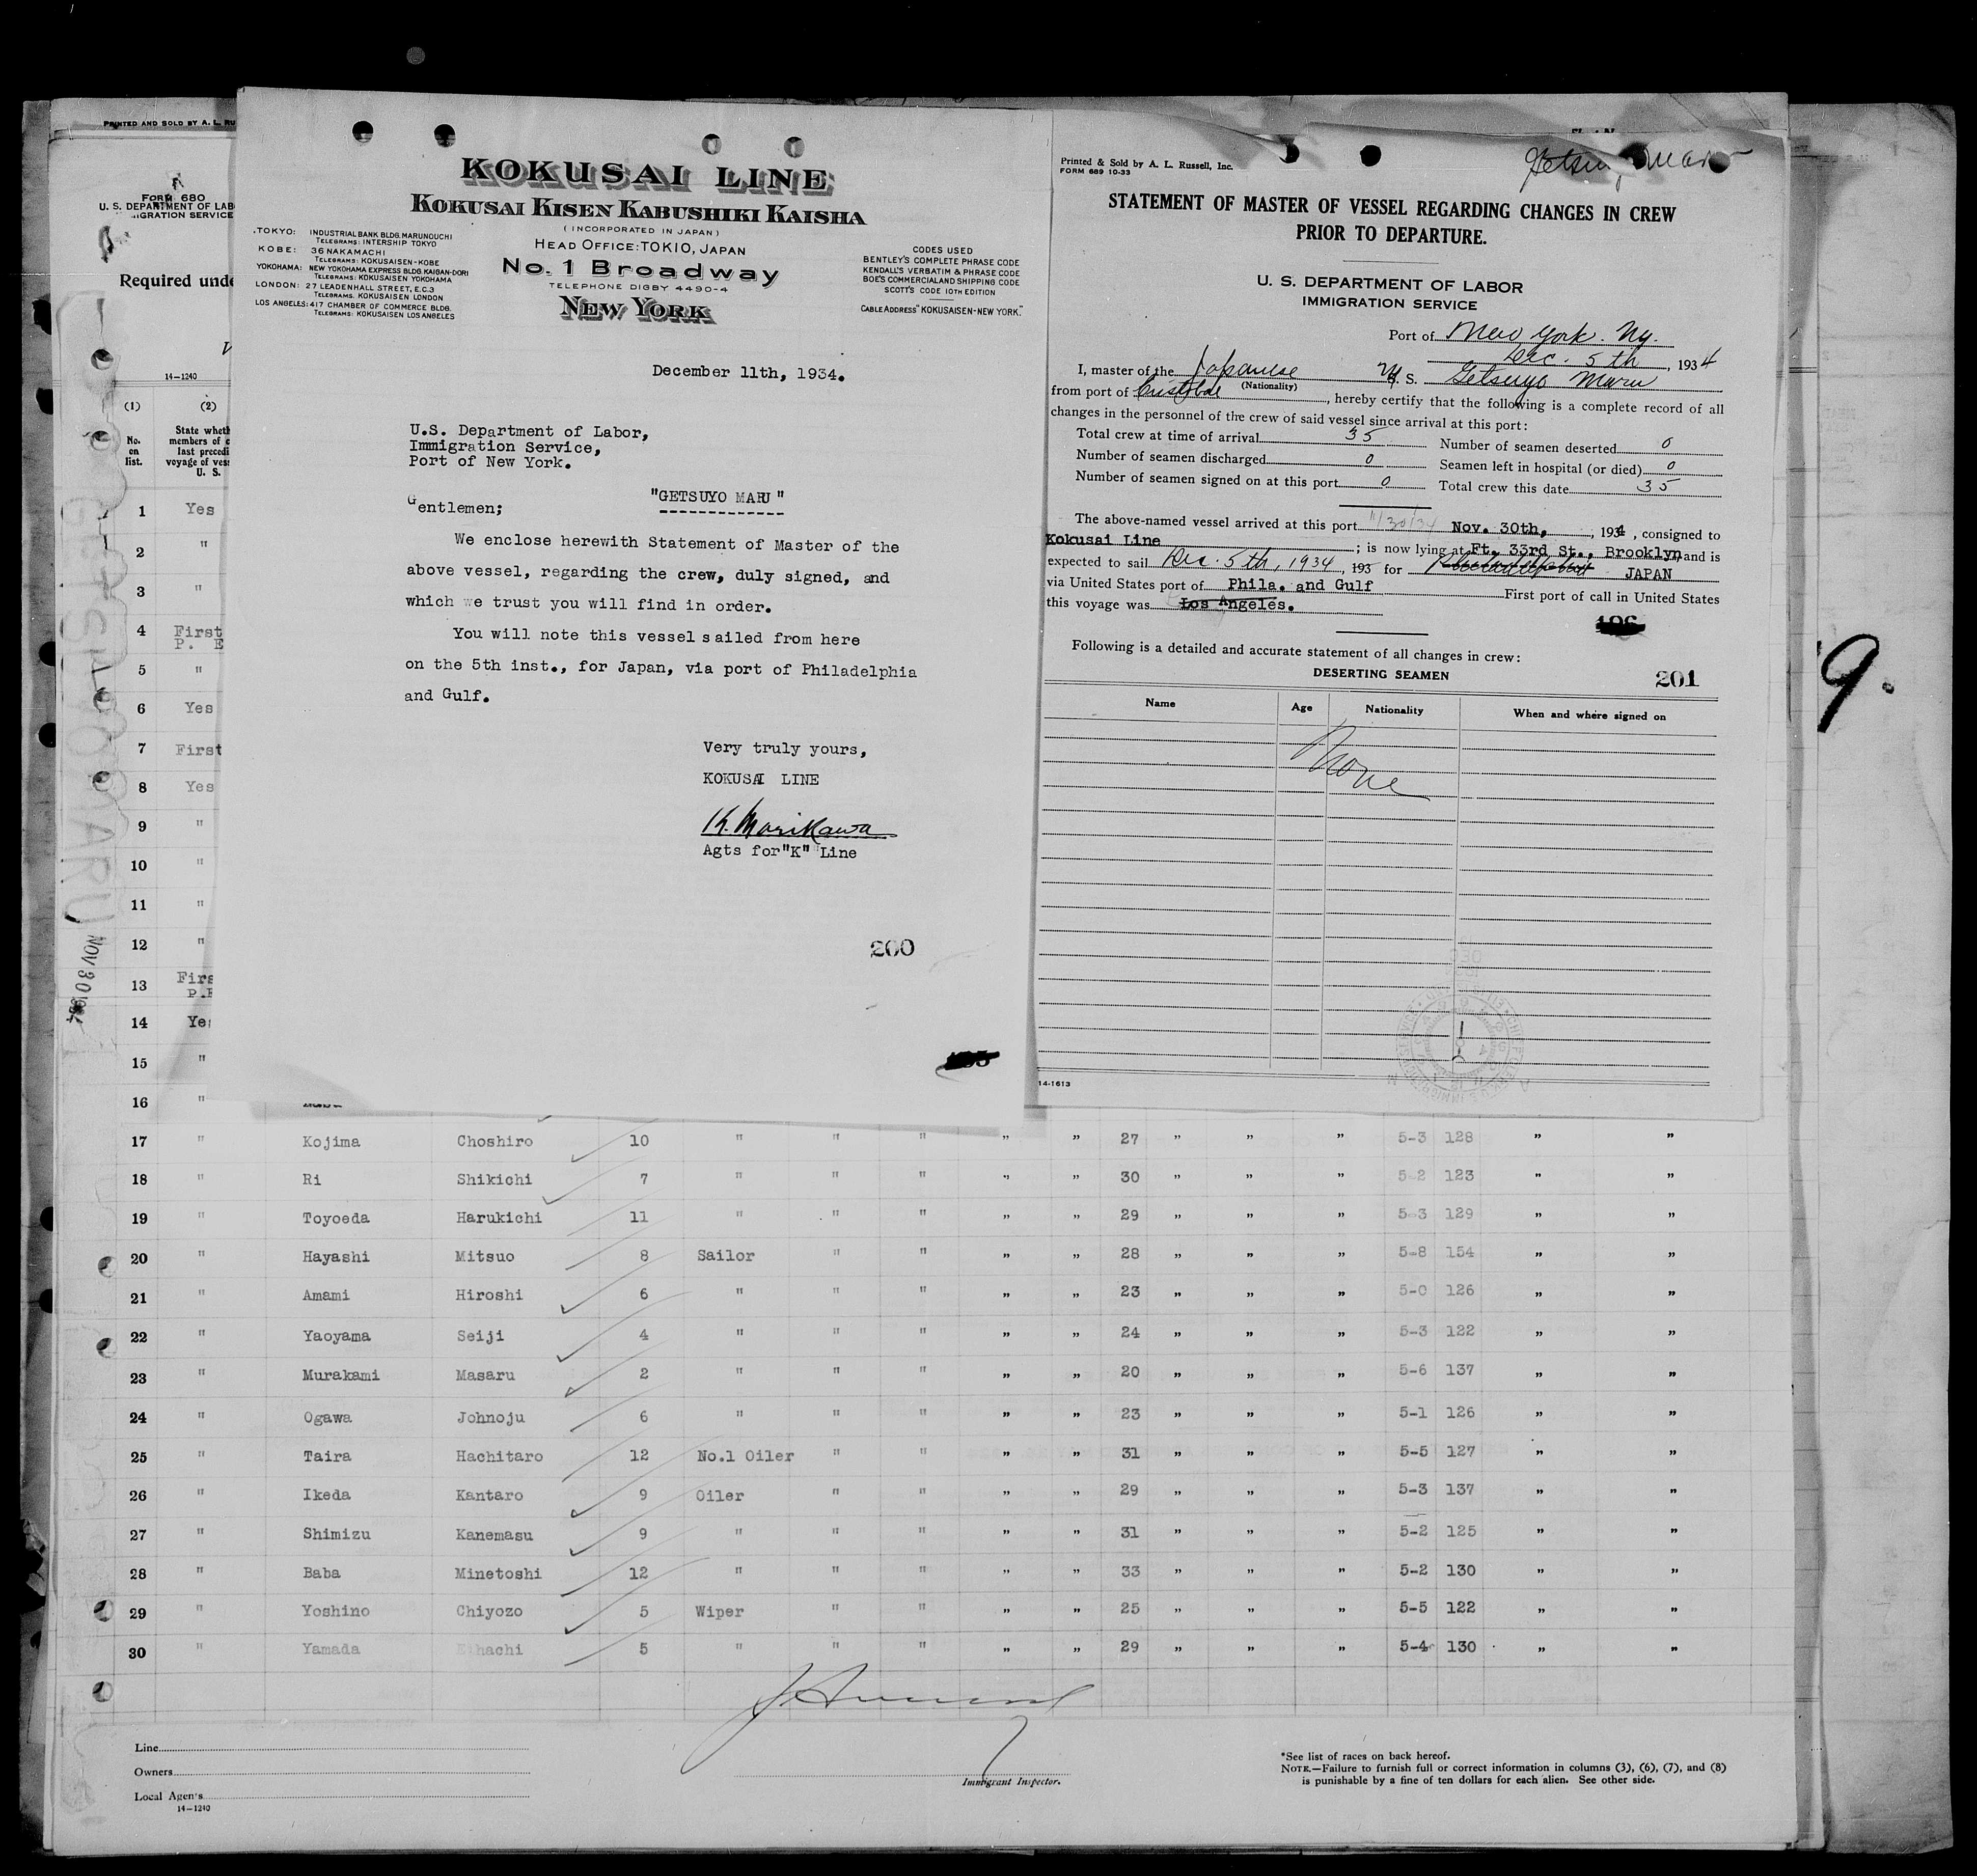 PRINTED AND SOLD BY A. L. RU
FORM 680
U. S. DEPARTMENT OF LAB
IMMIGRATION SERVICE
Required unde
14—1240
(1) (2)
No. on list.
State wheth
members of c
last precedi
voyage of vess
U. S.
1 Yes
2 "
3 "
4 First
P. E
5 "
6 Yes
7 First
8 Yes
9 "
10 "
11 "
12 "
13 Firs
P.E
14 Yes
15 "
16 "
GETSUYO MARU
NOV 30 1934
KOKUSAI LINE
KOKUSAI KISEN KABUSHIKI KAISHA
(INCORPORATED IN JAPAN)
HEAD OFFICE: TOKIO, JAPAN
No. 1 Broadway
TELEPHONE DIGBY 4490-4
NEW YORK
TOKYO: INDUSTRIAL BANK BLDG. MARUNOUCHI
TELEGRAMS: INTERSHIP TOKYO
KOBE: 36 NAKAMACHI
TELEGRAMS: KOKUSAISEN-KOBE
YOKOHAMA: NEW YOKOHAMA EXPRESS BLDG. KAIGAN-DORI
TELEGRAMS: KOKUSAISEN YOKOHAMA
LONDON: 27 LEADENHALL STREET, E.C.3
TELEGRAMS. KOKUSAISEN LONDON
LOS ANGELES: 417 CHAMBER OF COMMERCE BLDG.
TELEGRAMS: KOKUSAISEN LOS ANGELES
CODES USED
BENTLEY'S COMPLETE PHRASE CODE
KENDALL'S VERBATIM & PHRASE CODE
BOE'S COMMERCIAL AND SHIPPING CODE
SCOTT'S CODE 10TH EDITION
CABLE ADDRESS "KOKUSAISEN-NEW YORK."
December 11th, 1934.
U.S. Department of Labor,
Immigration Service,
Port of New York.
"GETSUYO MARU"
Gentlemen;
We enclose herewith Statement of Master of the
above vessel, regarding the crew, duly signed, and
which we trust you will find in order.
You will note this vessel sailed from here
on the 5th inst., for Japan, via port of Philadelphia
and Gulf.
Very truly yours,
KOKUSAI LINE
K. Morikawa
Agts for "K" Line
200
Printed & Sold by A. L. Russell, Inc.
FORM 689 10-33
Getsuyo Maru
STATEMENT OF MASTER OF VESSEL REGARDING CHANGES IN CREW
PRIOR TO DEPARTURE.
U. S. DEPARTMENT OF LABOR
IMMIGRATION SERVICE
Port of New York. Ny.
Dec. 5th, 1934
I, master of the Japanese M. S. Getsuyo Maru
(Nationality)
from port of Cristobal, hereby certify that the following is a complete record of all
changes in the personnel of the crew of said vessel since arrival at this port:
Total crew at time of arrival 35 Number of seamen deserted 0
Number of seamen discharged 0 Seamen left in hospital (or died) 0
Number of seamen signed on at this port 0 Total crew this date 35
The above-named vessel arrived at this port 11/30/34 Nov. 30th, , 1934 , consigned to
Kokusai Line ; is now lying at Ft. 33rd St., Brooklyn, and is
expected to sail Dec. 5th, 1934, 193 for JAPAN
via United States port of Phila. and Gulf First port of call in United States
this voyage was Los Angeles.
196
Following is a detailed and accurate statement of all changes in crew:
DESERTING SEAMEN
201
Name Age Nationality When and where signed on
None
14-1613
9.
17 " Kojima Choshiro 10 " " " " " 27 " " " 5-3 128 " "
18 " Ri Shikichi 7 " " " " " 30 " " " 5-2 123 " "
19 " Toyoeda Harukichi 11 " " " " " 29 " " " 5-3 129 " "
20 " Hayashi Mitsuo 8 Sailor " " " " 28 " " " 5-8 154 " "
21 " Amami Hiroshi 6 " " " " " 23 " " " 5-0 126 " "
22 " Yaoyama Seiji 4 " " " " " 24 " " " 5-3 122 " "
23 " Murakami Masaru 2 " " " " " 20 " " " 5-6 137 " "
24 " Ogawa Johnoju 6 " " " " " 23 " " " 5-1 126 " "
25 " Taira Hachitaro 12 No.1 Oiler " " " " 31 " " " 5-5 127 " "
26 " Ikeda Kantaro 9 Oiler " " " " 29 " " " 5-3 137 " "
27 " Shimizu Kanemasu 9 " " " " " 31 " " " 5-2 125 " "
28 " Baba Minetoshi 12 " " " " " 33 " " " 5-2 130 " "
29 " Yoshino Chiyozo 5 Wiper " " " " 25 " " " 5-5 122 " "
30 " Yamada Eihachi 5 " " " " " 29 " " " 5-4 130 " "
Line
Owners
Local Agents
14—1240
Immigrant Inspector.
*See list of races on back hereof.
NOTE.—Failure to furnish full or correct information in columns (3), (6), (7), and (8)
is punishable by a fine of ten dollars for each alien. See other side.